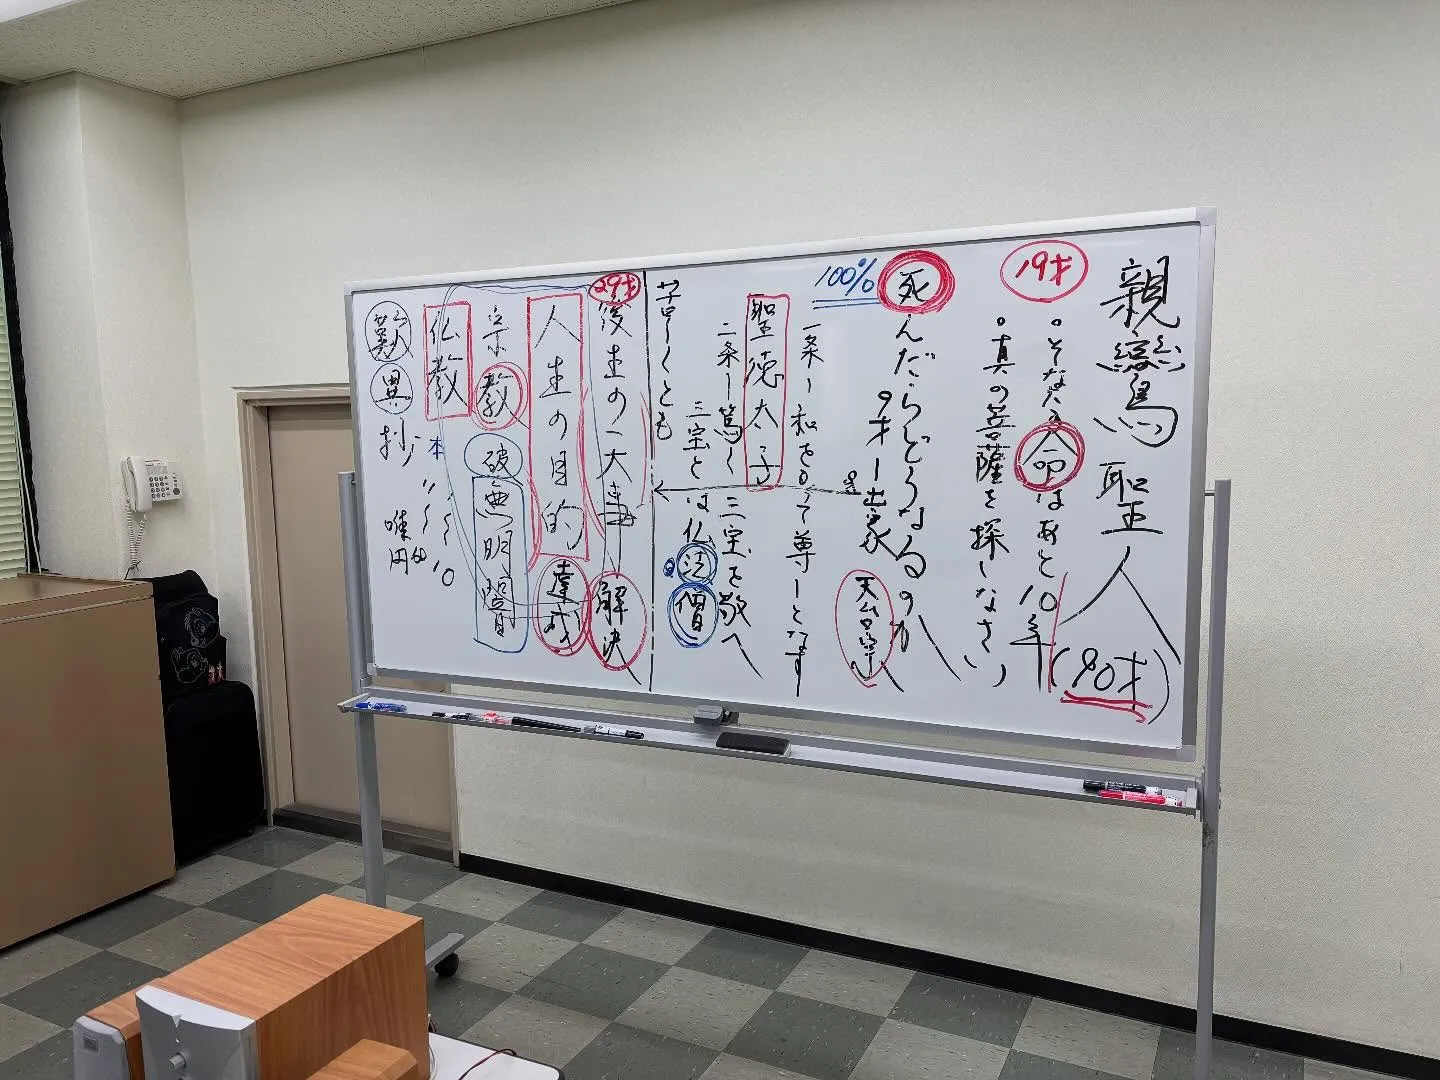 親鸞聖人(90才)
19才
。そなたの命はあと10年
。真の菩薩を探しなさい
死んだらどうなるのか
100%
9才ー出家
天台宗
一条ー和を以て尊しとなす
聖徳太子
二条ー篤く三宝を敬へ
三宝とは仏法僧
苦しくとも
29才
後生の一大事解決
人生の目的達成
宗教
破無明闇
仏教
本
歎異抄
唯円